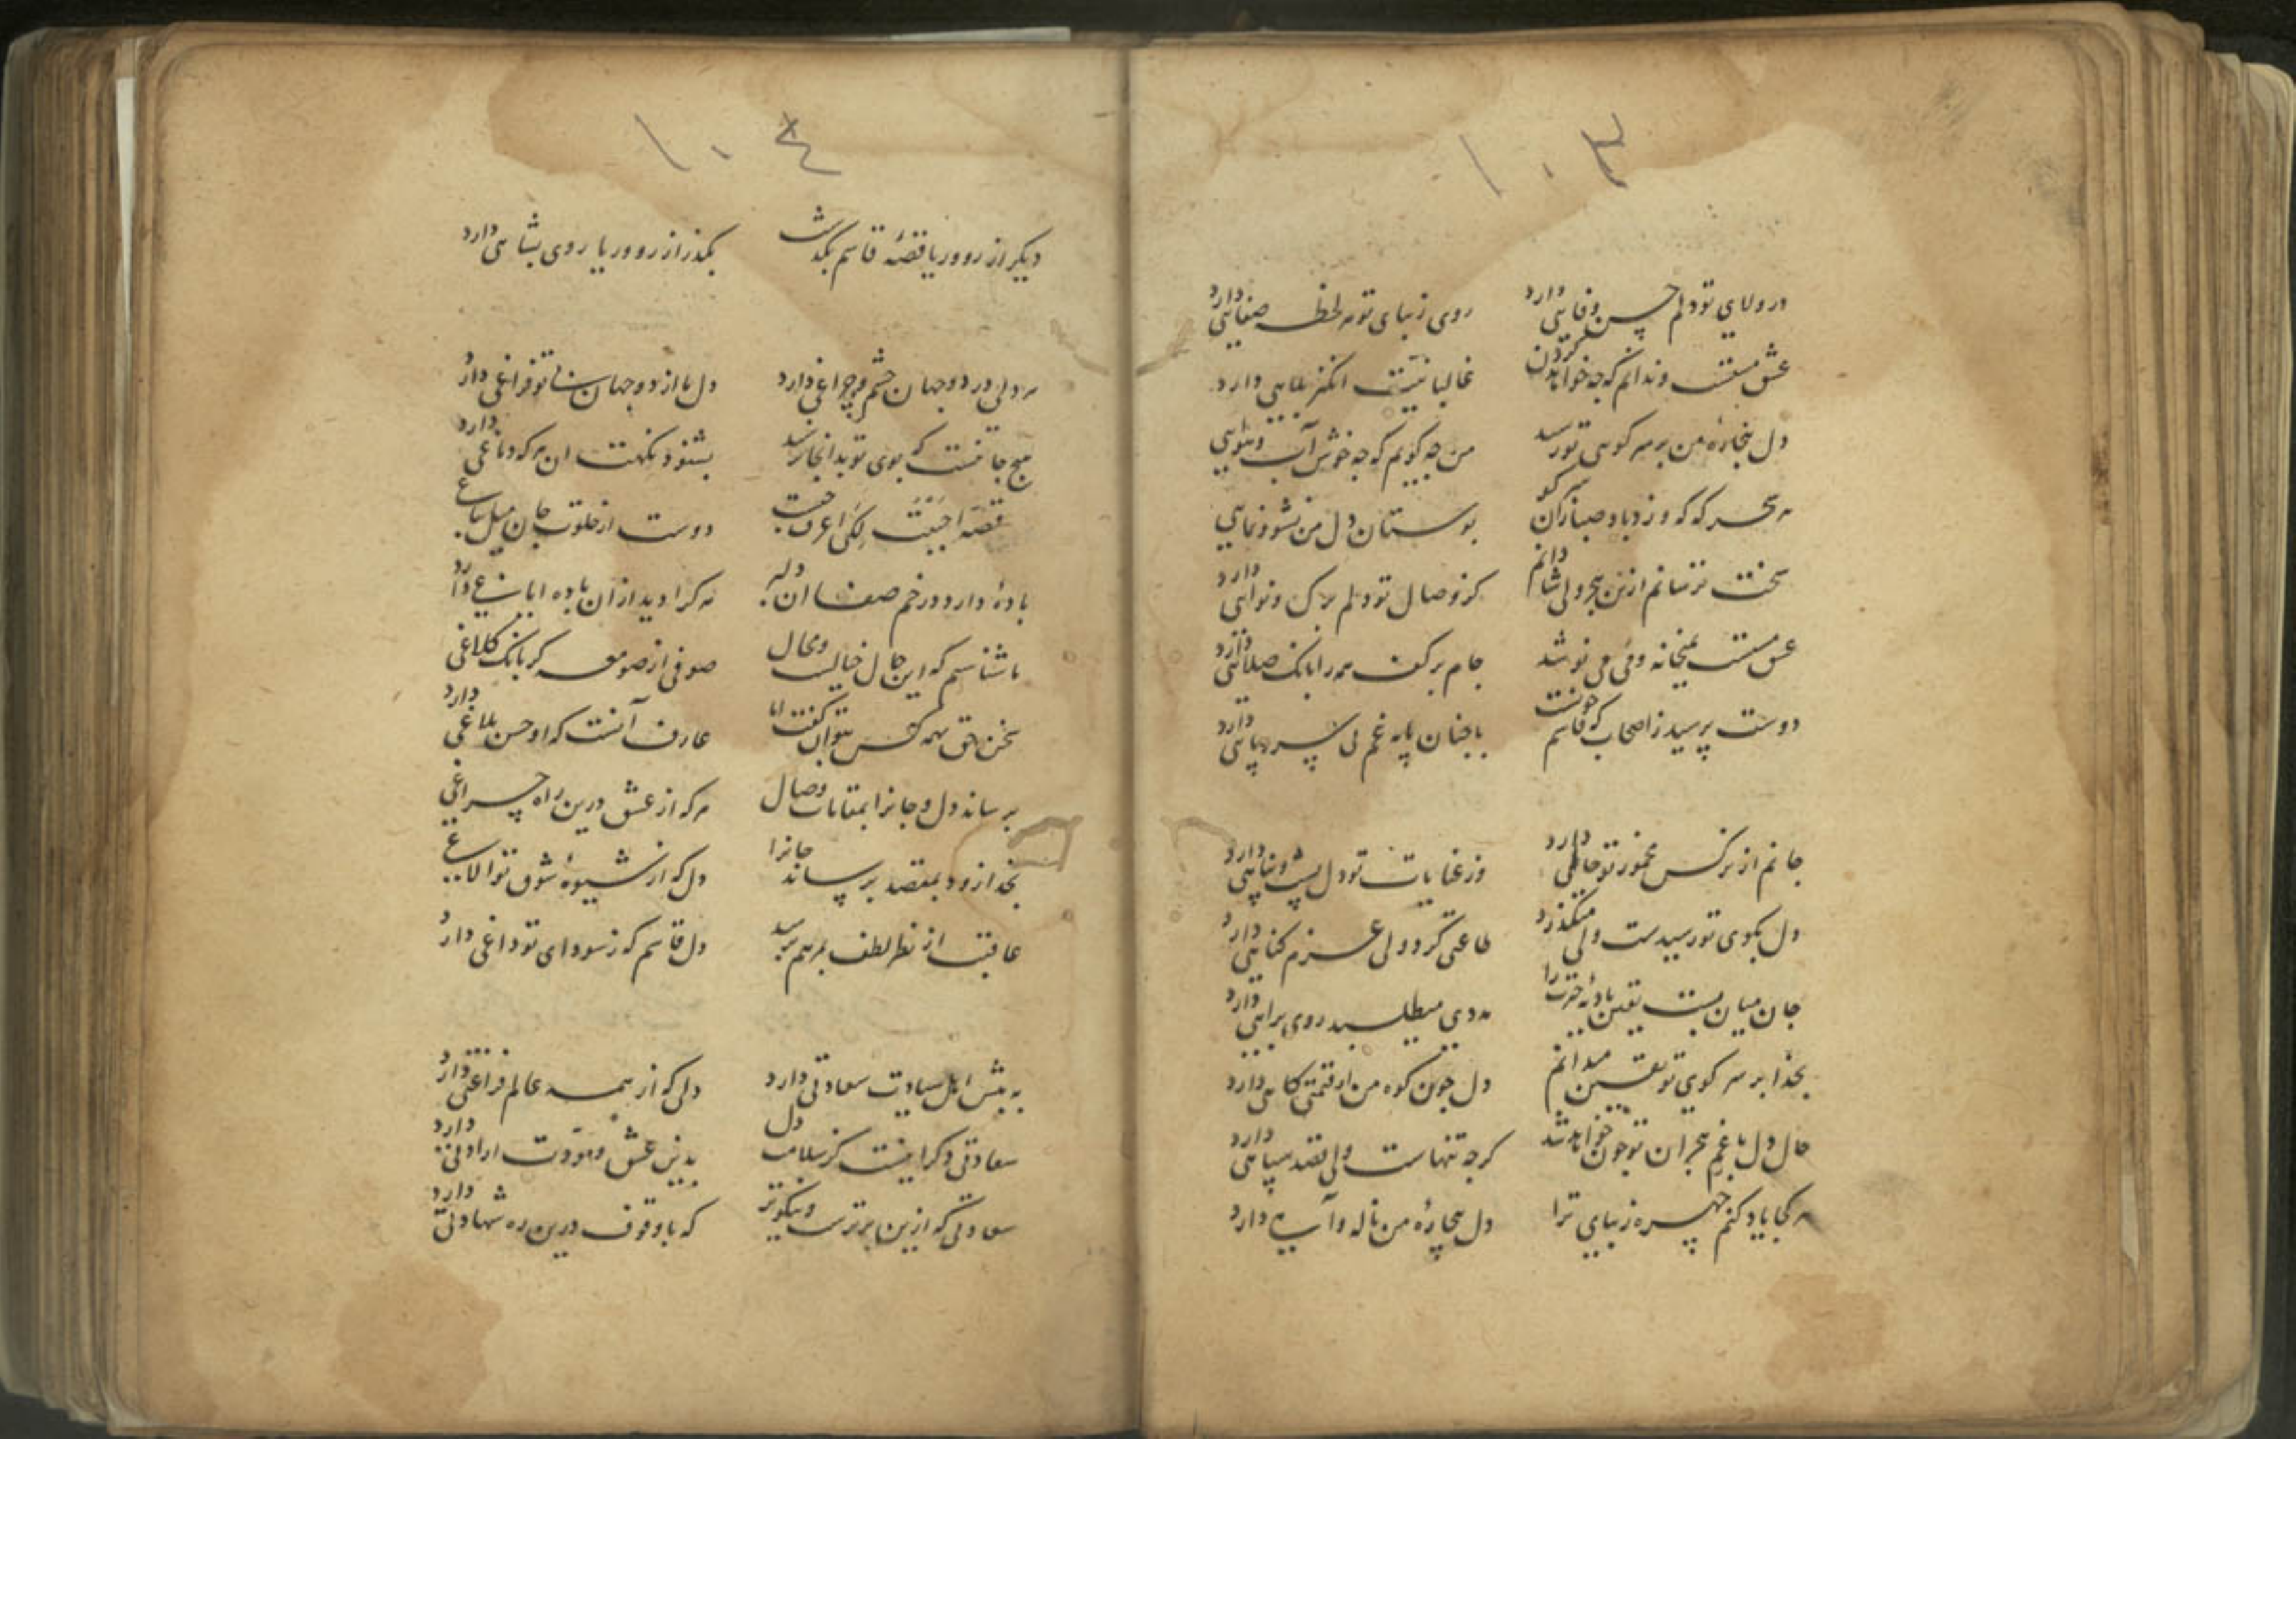 ۱۰۳
در ولای تو دلم حسن وفایی دارد روی زیبای تو هر لحظه صفایی دارد
عشق مستست و ندانم که چه خواهد کردن غالبا نیت انگیز بلایی دارد
دل بیچاره من بر سر کوی تو رسید من چه گویم که چه خوش آب و هوایی
هر سحر که که وزد باد صبا زان سر کو بوستان دل من نشو و نمایی
سخت ترسانم ازین هجر ولی شادانم کز وصال تو دلم برک و نوایی دارد
عشق مستست بمیخانه و می می نوشد جام بر کف همه را بانک صلایی دارد
دوست پرسید ز اصحاب که قاسم چونست با چنان پایه غم بی سر و پایی دارد
جانم از نرکس مخمور تو جاهی دارد وز عنایات تو دل پشت و پناهی دارد
دل بکوی تو رسیدست ولی میکذرد طاعتی کرد ولی عزم کناهی دارد
جان میان بست یقین بادیه را مددی میطلبد روی براهی دارد
بخدا بر سر کوی تو یقین میدانم دل چون کوه من ار قیمت کاهی دارد
حال دل با غم هجران تو چون خواهد شد کرچه تنهاست ولی قصد سپاهی دارد
هر کجا یاد کنم چهره زیبای ترا دل بیچاره من ناله و آهی دارد
۱۰٤
دیکر از رو و ریا قصه قاسم بکذشت بکذر از رو و ریا روی بشاهی دارد
هر دلی در دو جهان چشم و چراغی دارد دل ما از دو جهان با تو فراغی دارد
هیچ جا نیست که بوی تو بدانجا نرسید بشنود نکهت ان هر که دماغی دارد
قصه احببت لکی اعرف دوست از خلوت جان میل
باده دارد در خم صفا ان دلبر هر کرا دید از ان باده ایاغی دارد
ما شناسیم که این حال خیالست و محال صوفی از صومعه کر بانک کلاغی
سخن حق بهمه کس نتوان کفت اما عارف آنست که او حسن بلاغی دارد
برساند دل و جانرا بمقامات وصال هر که از عشق درین راه چراغی
بخدا زود بمقصد برساند جانرا دل که از شیوه شوق تو
عاقبت از نظر لطف بمرهم برسد دل قاسم که ز سودای تو داغی دارد
به پیش اهل سعادت سعادتی دارد دلی که از همه عالم فراغتی دارد
سعادتی دکر اینست کز سلامت دل بدین عشق و مودت ارادتی دارد
سعادتی که ازین برترست و نیکوتر که با وقوف درین ره شهادتی دارد